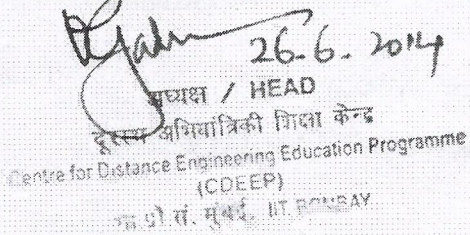 26.6.2014
अध्यक्ष / HEAD
दूरस्थ अभियांत्रिकी शिक्षा केन्द्र
Centre for Distance Engineering Education Programme
(CDEEP)
भा.प्रौ.सं. मुंबई, IIT BOMBAY